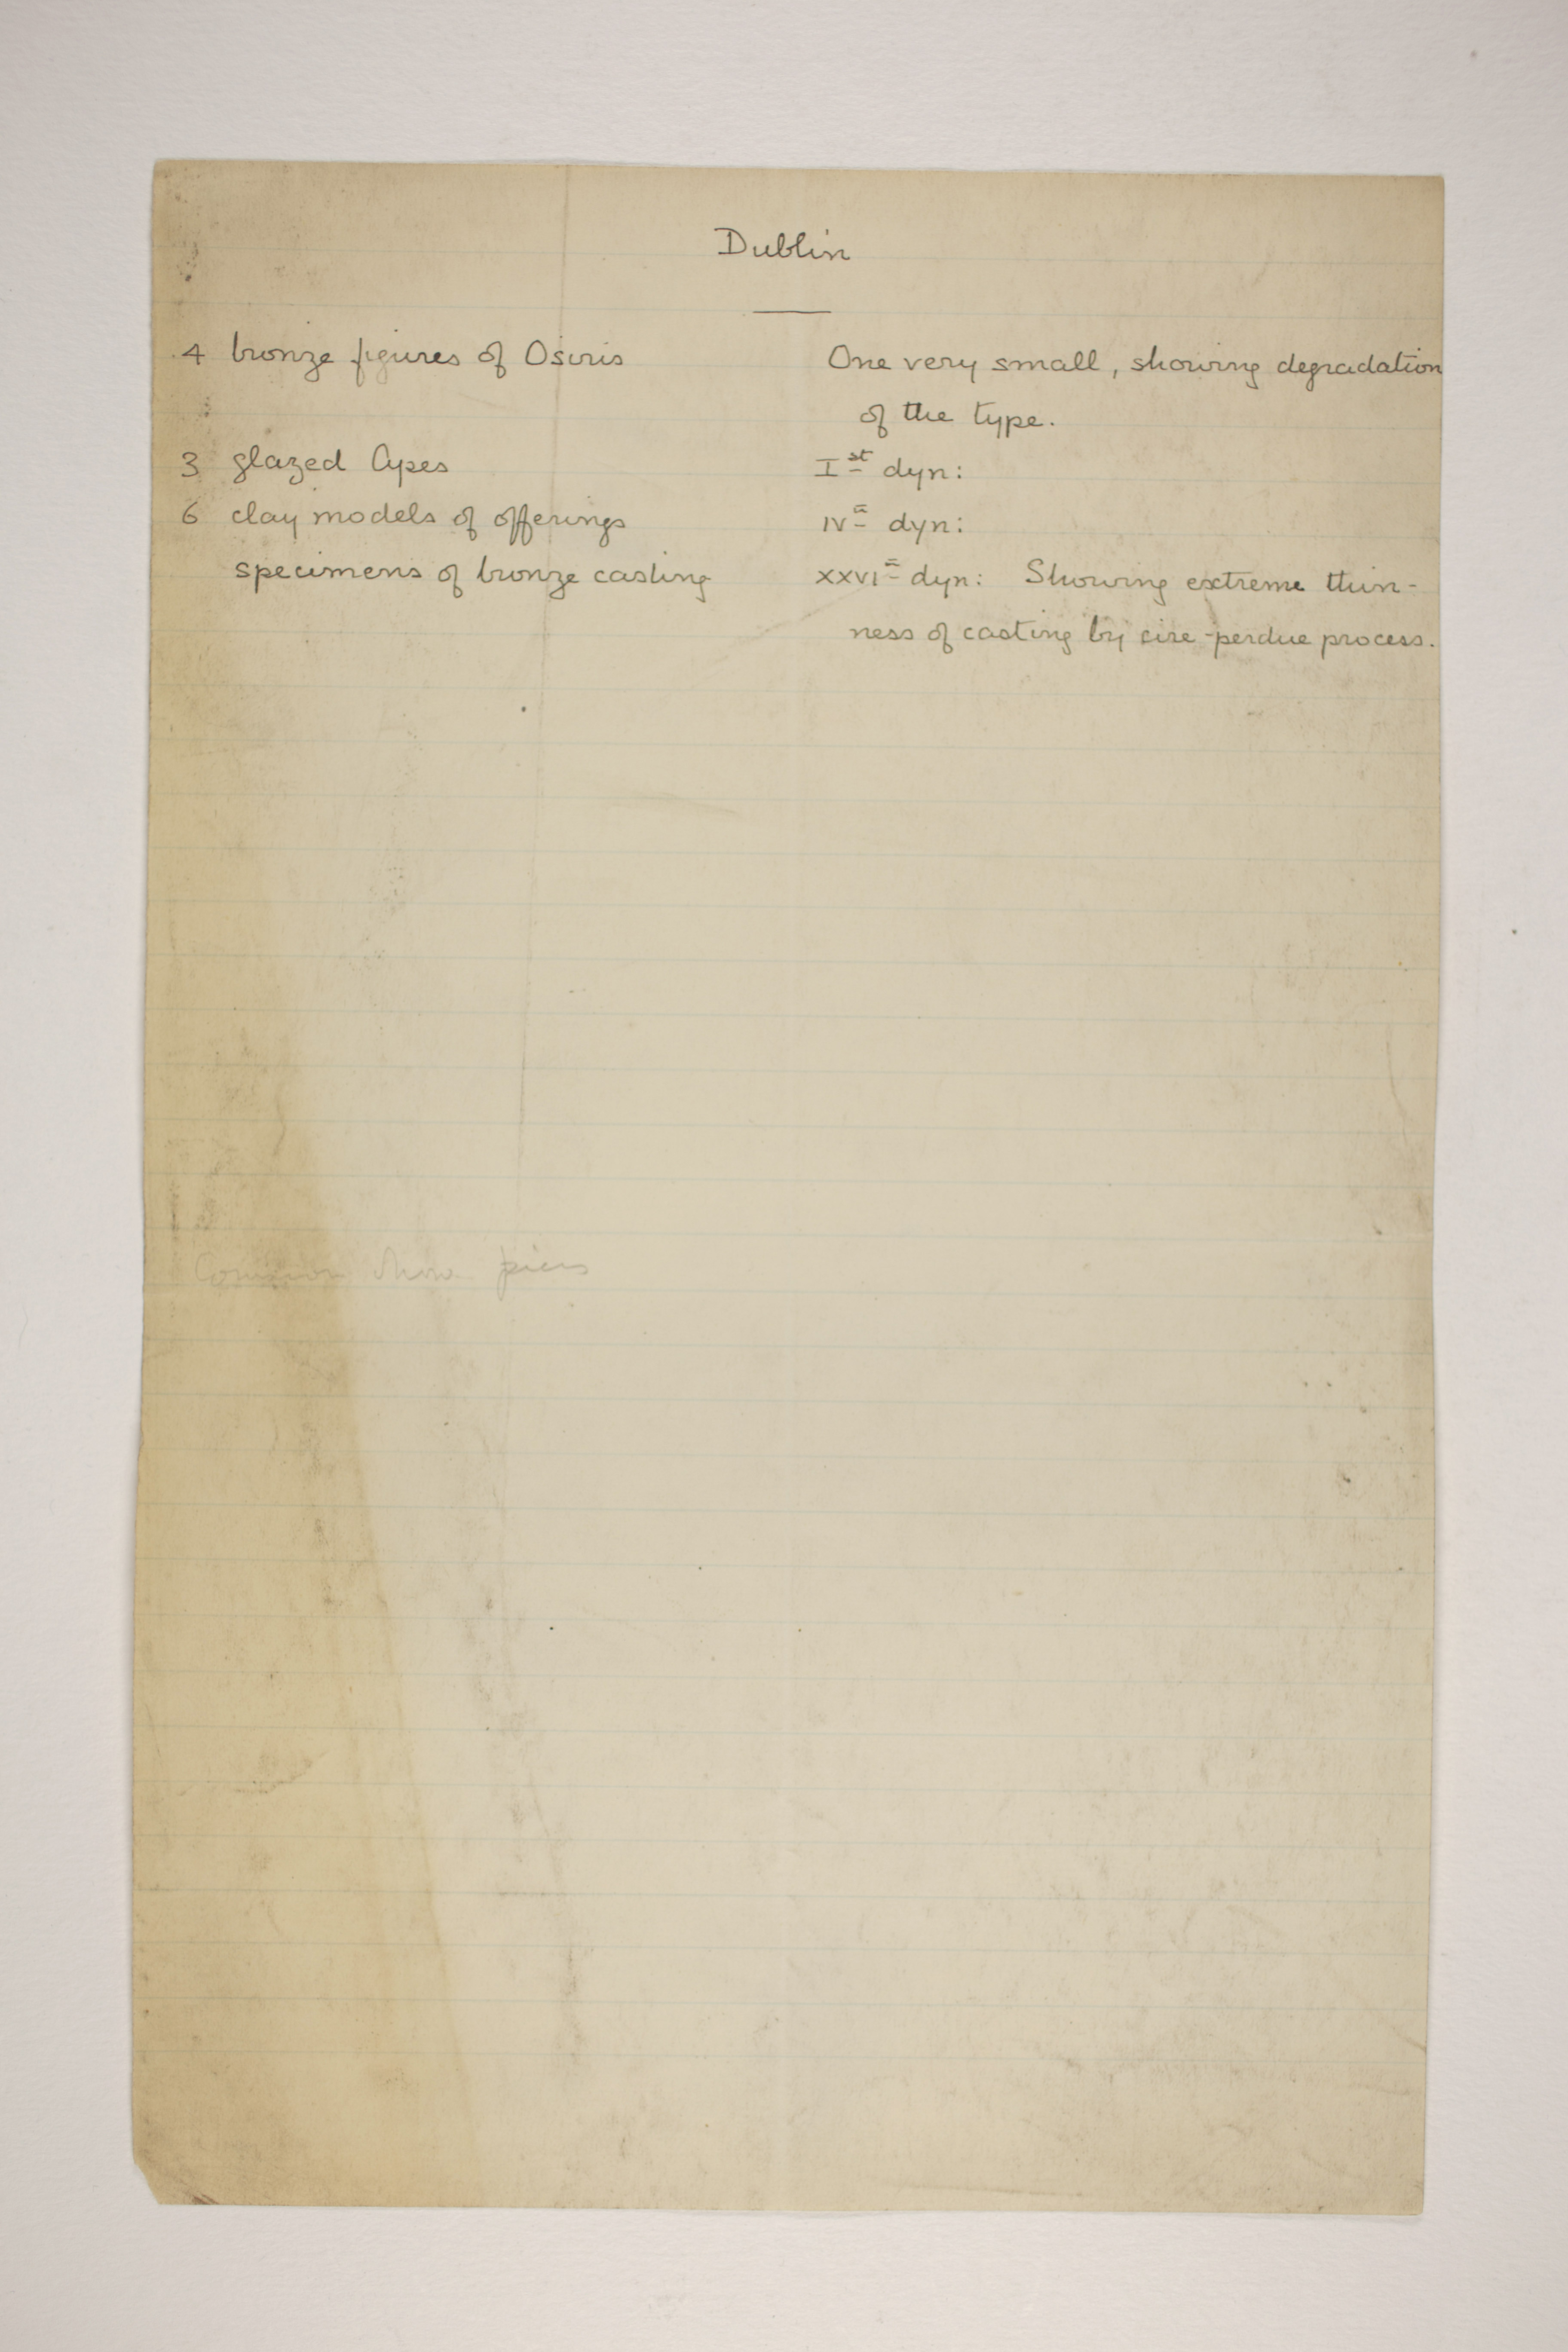 Dublin
4 bronze figures of Osiris One very small, showing degradation
of the type.
3 glazed Apes I st dyn:
6 clay models of offerings IV = dyn:
specimens of bronze casting XXVI = dyn: Showing extreme thin-
ness of casting by cire-perdue process.
Common